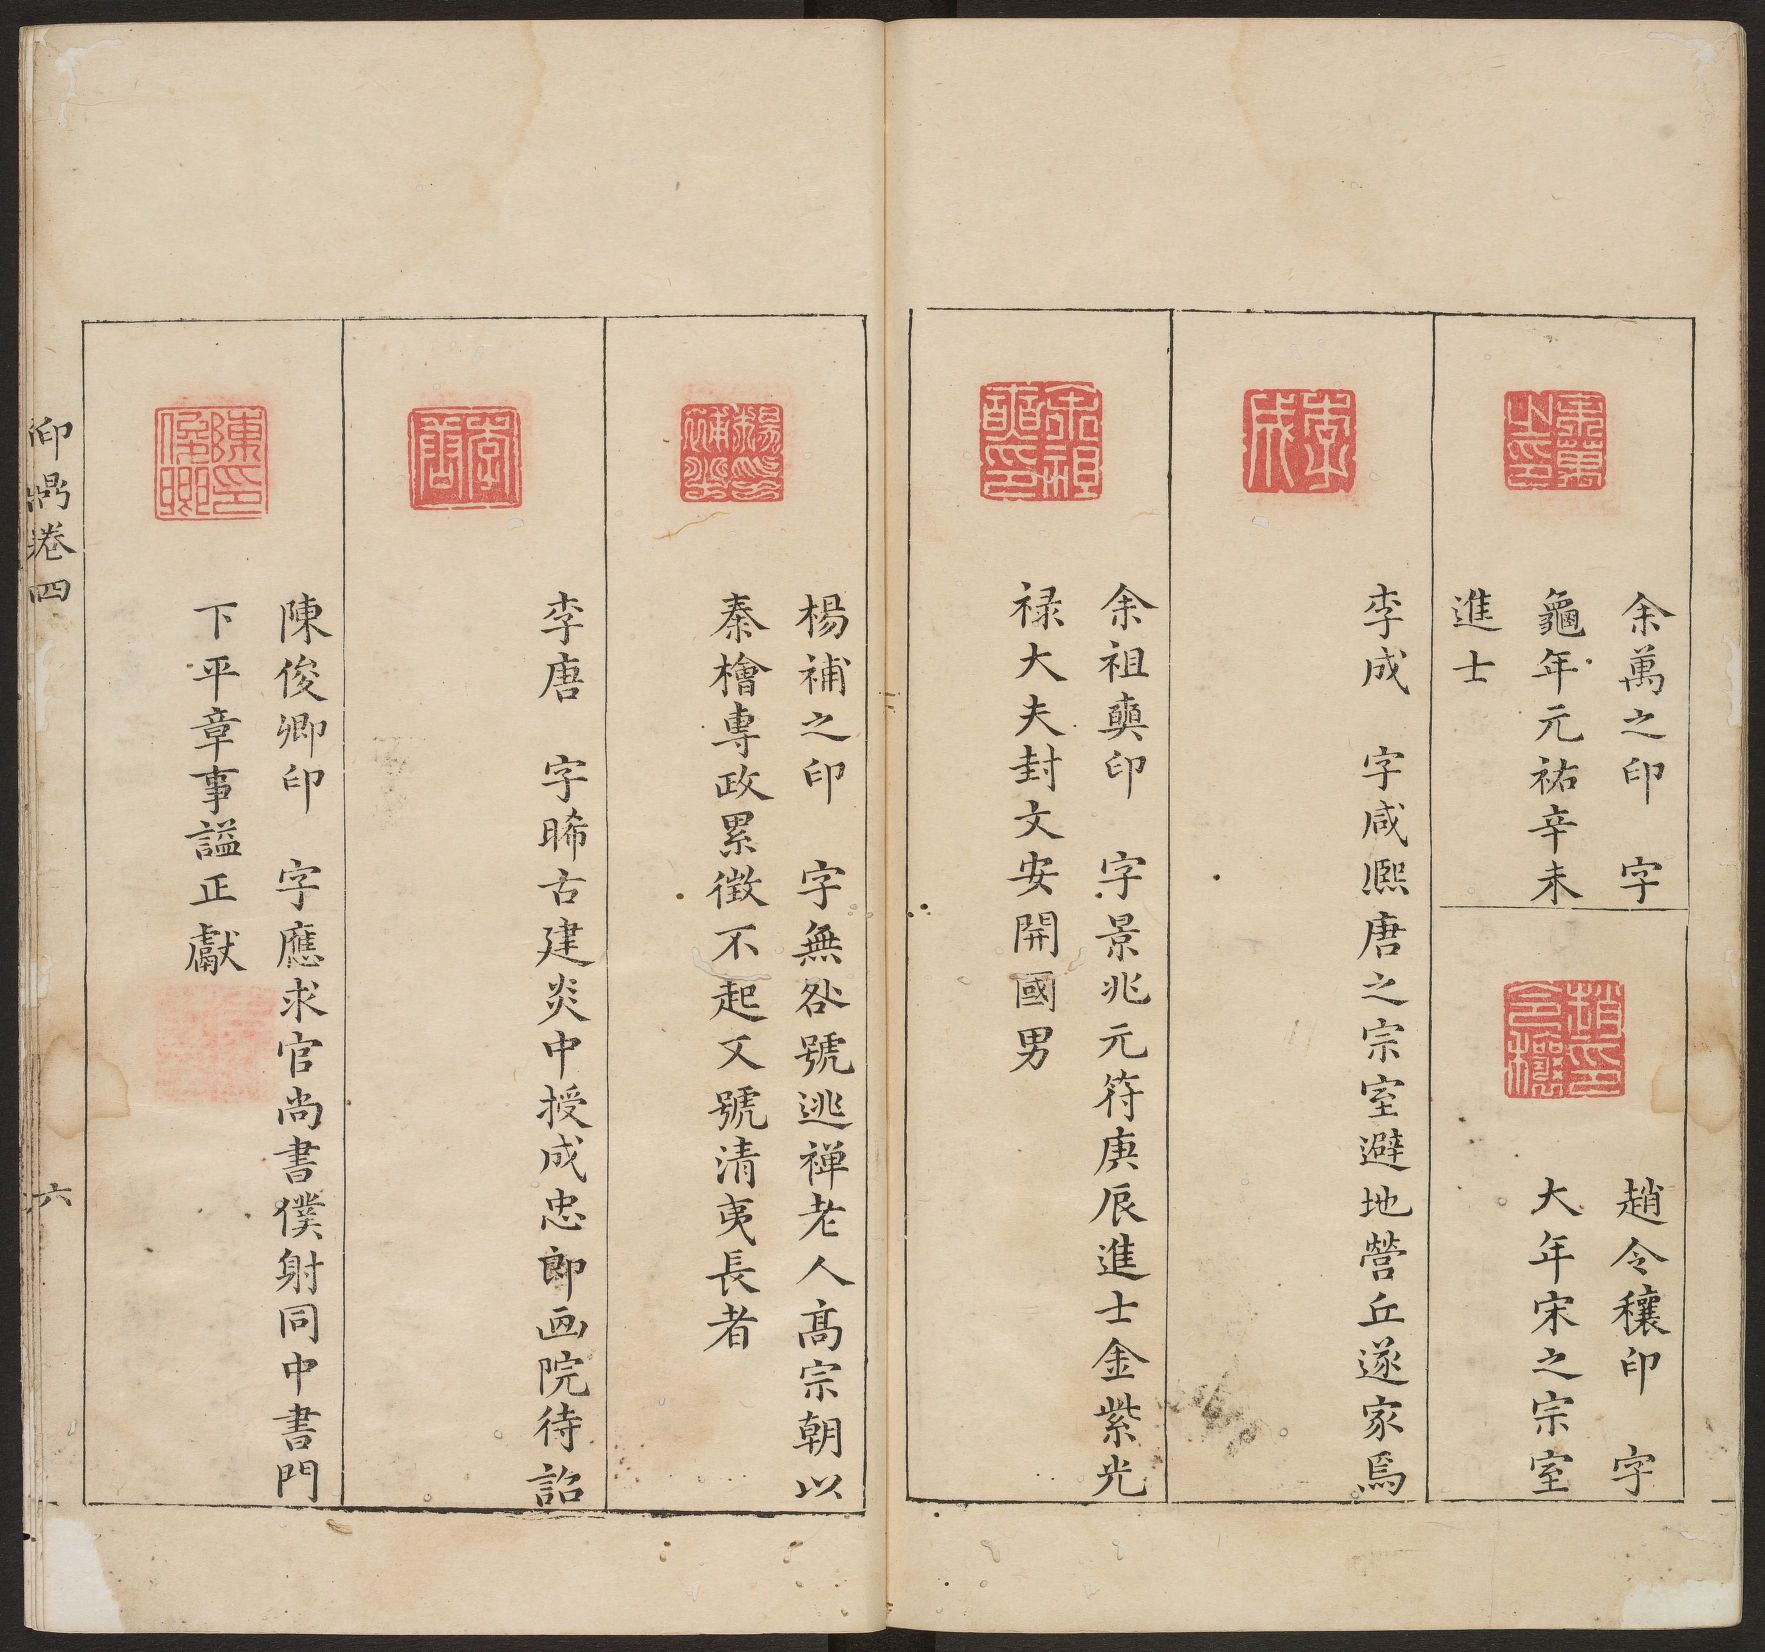 余萬之印　字
龜年元祐辛未
進士
趙令穰印　字
大年宋之宗室
李成　字咸熈唐之宗室避地營丘遂家焉
余祖奭印　字景兆元符庚辰進士金紫光
禄大夫封文安開國男
楊補之印　字無咎號逃禪老人髙宗朝以
秦檜專政累徵不起又號清夷長者
李唐　字晞古建炎中授成忠郎画院待詔
陳俊卿印　字應求官尚書僕射同中書門
下平章事謚正獻
卷四
六